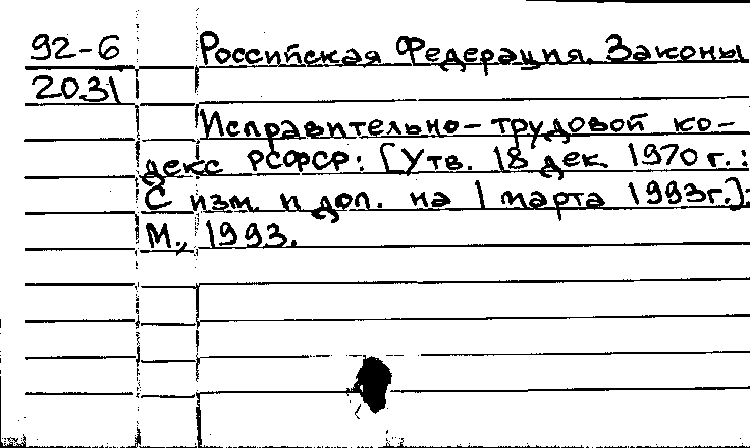 92-6 Российская Федерация. Законы
2031
Исправительно-трудовой ко-
декс РСФСР: [Утв. 18 дек. 1970 г.:
С изм. и доп. на 1 марта 1993г.]:
М., 1993.